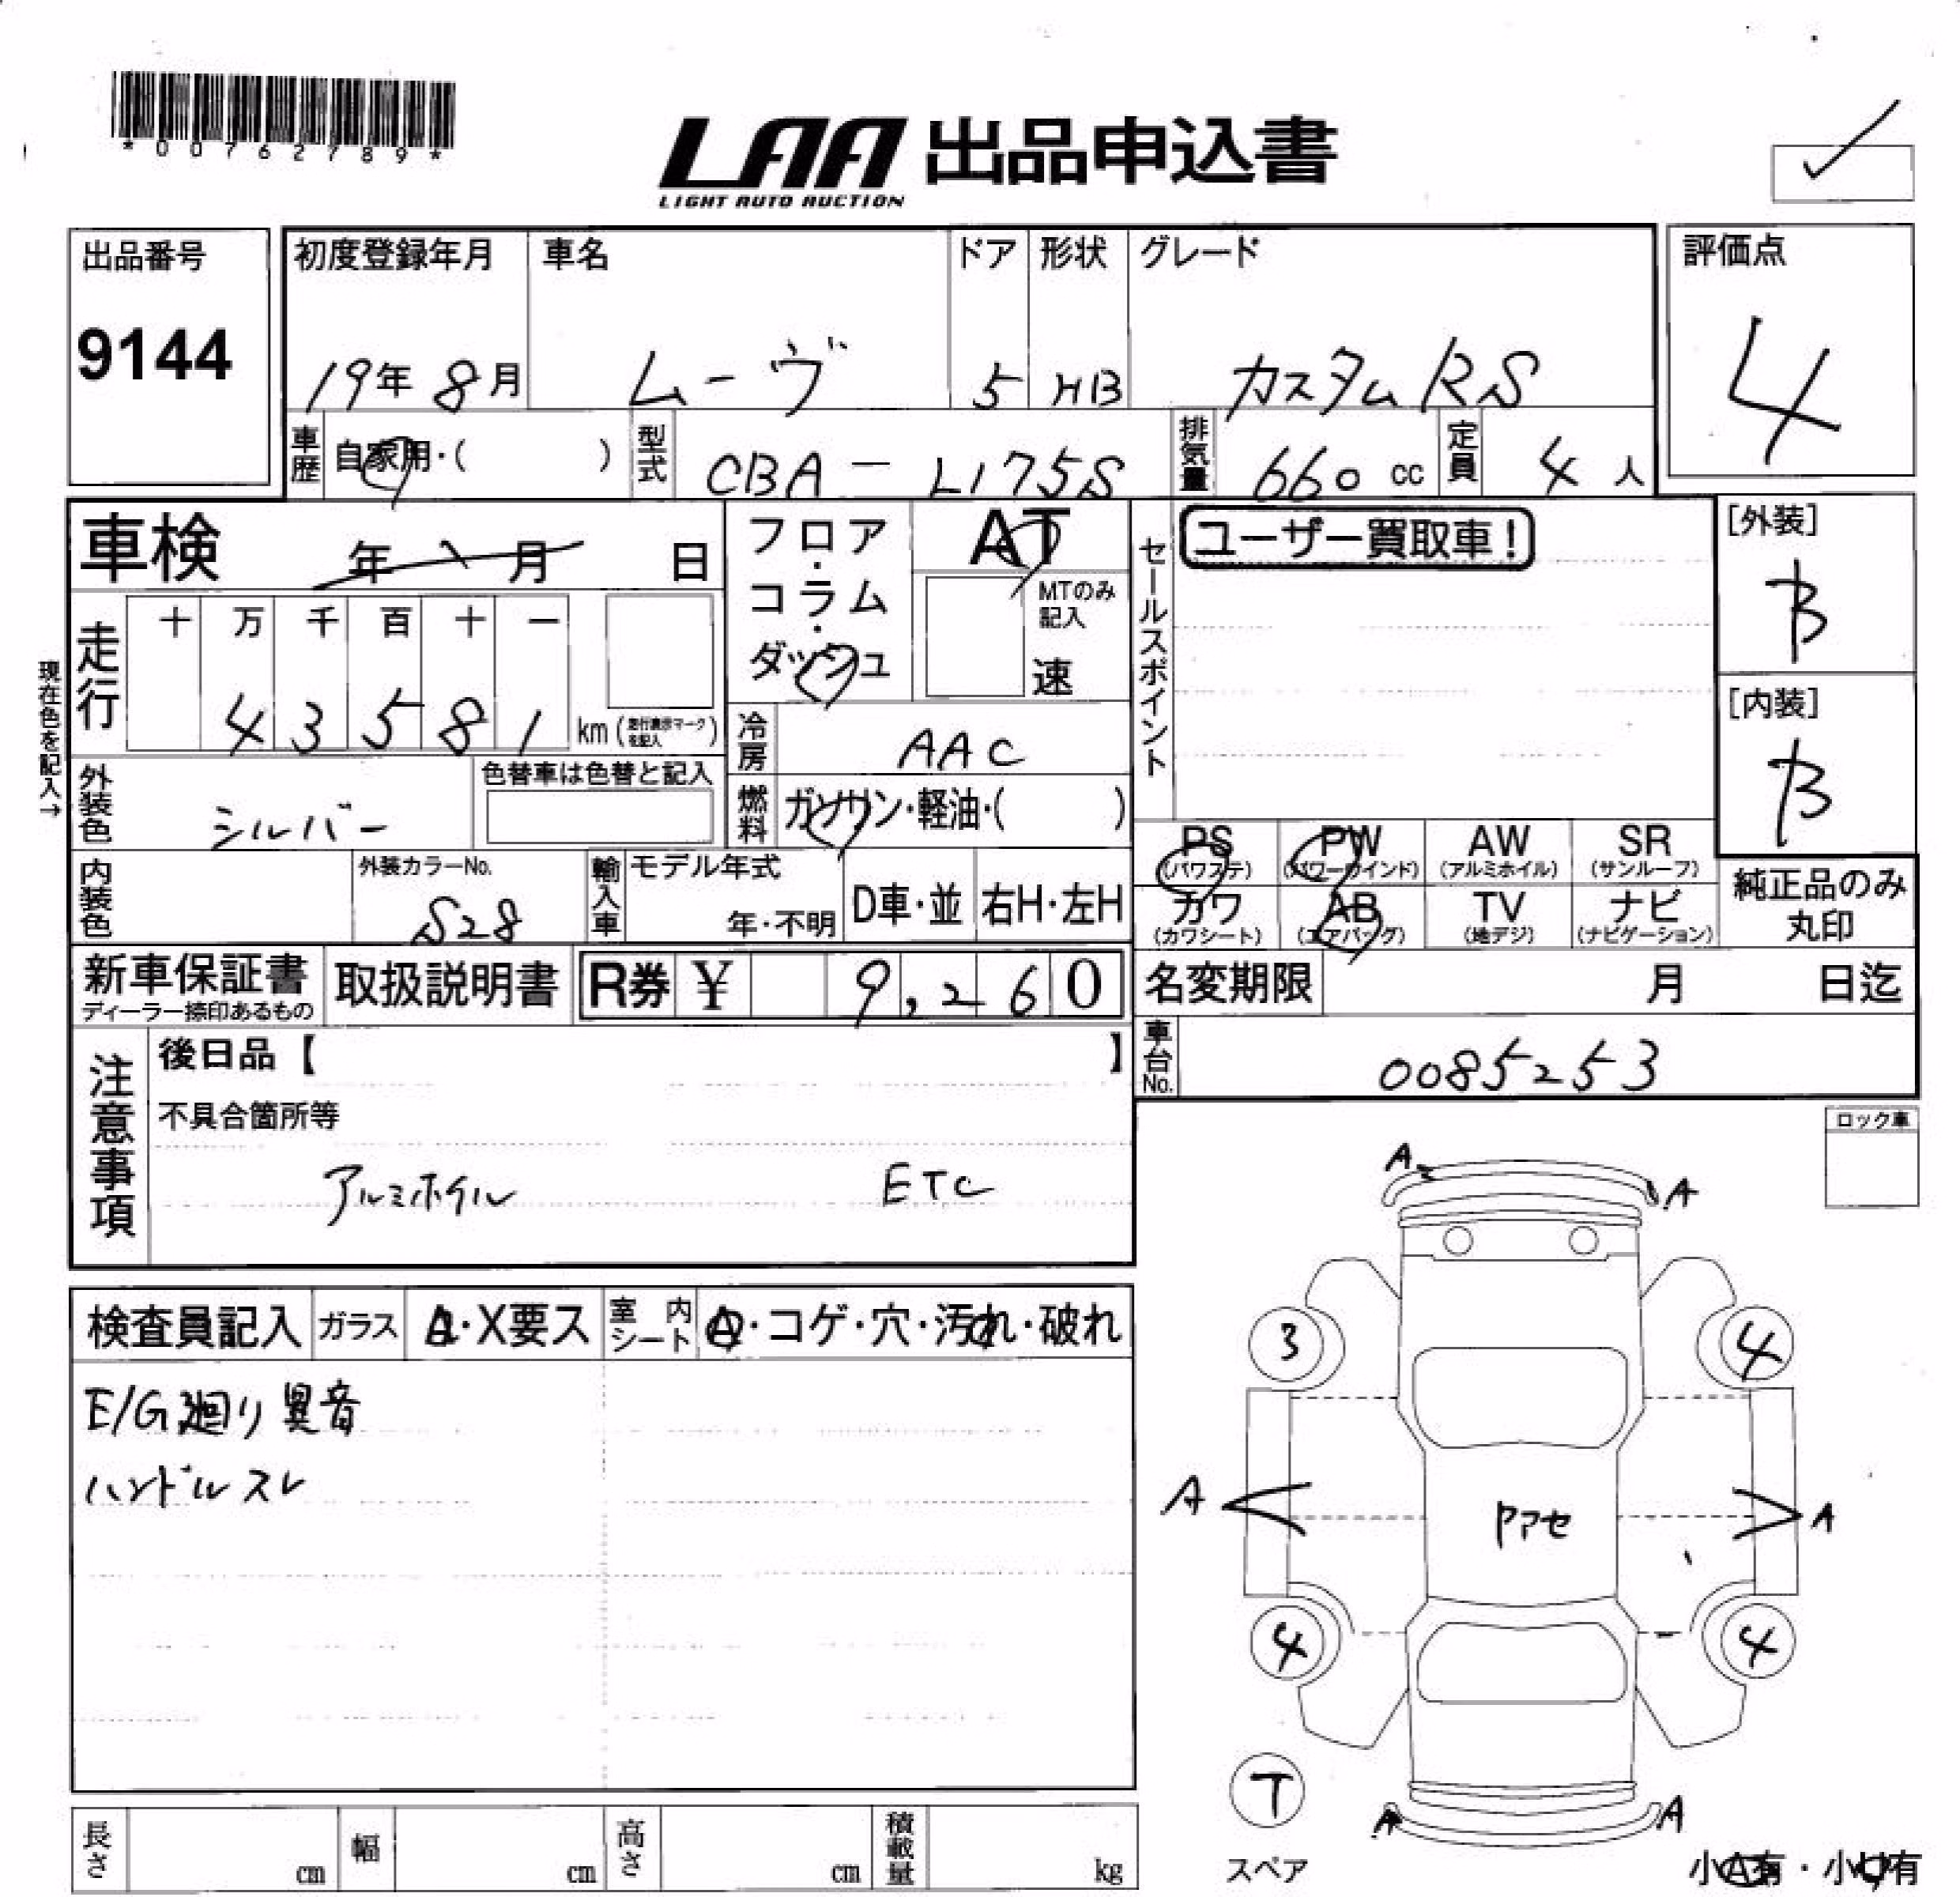 *00762789*
LAA 出品申込書
LIGHT AUTO AUCTION
出品番号
9144
初度登録年月 車名 ドア 形状 グレード
19年 8月 ムーヴ 5 HB カスタムRS
評価点
4
車歴 自家用・( ) 型式 CBA-L175S 排気量 660 cc 定員 4 人
車検 年 月 日
フロア・コラム・ダッシュ
AT
MTのみ記入
速
セールスポイント
ユーザー買取車!
[外装]
B
[内装]
B
現在色を記入→
走行 十 万 千 百 十 一
4 3 5 8 1 km (走行表示マークを記入)
冷房 AAC
燃料 ガソリン・軽油・( )
外装色 シルバー
色替車は色替と記入
内装色
外装カラーNo.
S28
輸入車 モデル年式
年・不明
D車・並 右H・左H
PS (パワステ) PW (パワーウインド) AW (アルミホイル) SR (サンルーフ)
カワ (カワシート) AB (エアバッグ) TV (地デジ) ナビ (ナビゲーション)
純正品のみ
丸印
新車保証書
ディーラー捺印あるもの
取扱説明書
R券 ¥ 9,260
名変期限 月 日迄
車台No. 0085253
注意事項
後日品【 】
不具合箇所等
アルミホイル ETC
ロック車
検査員記入 ガラス A・X要ス 室内シート A・コゲ・穴・汚れ・破れ
E/G廻り異音
ハンドルスレ
A A
3 4
A A
ヤアセ
4 4
T
スペア
A A
小A有・小U有
長さ cm 幅 cm 高さ cm 積載量 kg